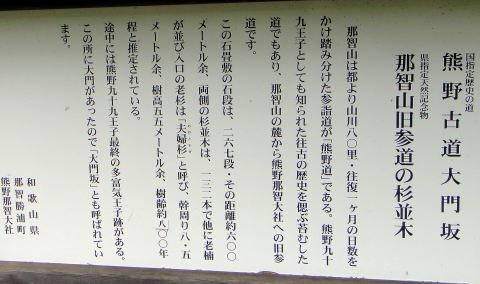 国指定歴史の道
熊野古道大門坂
県指定天然記念物
那智山旧参道の杉並木
那智山は都より山川八〇里・往復一ヶ月の日数を
かけ踏み分けた参詣道が「熊野道」である。熊野九十
九王子としても知られた往古の歴史を偲ぶ苔むした
道でもあり、那智山の麓から熊野那智大社への旧参
道です。
この石畳敷の石段は、二六七段・その距離約六〇〇
メートル余、両側の杉並木は、一三二本で他に老楠
が並び入口の老杉は「夫婦杉」と呼び、幹周り八・五
メートル余、樹高五五メートル余、樹齢約八〇〇年
程と推定されている。
途中には熊野九十九王子最終の多富気王子跡がある。
この所に大門があったので「大門坂」とも呼ばれてい
ます。
和歌山県
那智勝浦町
熊野那智大社